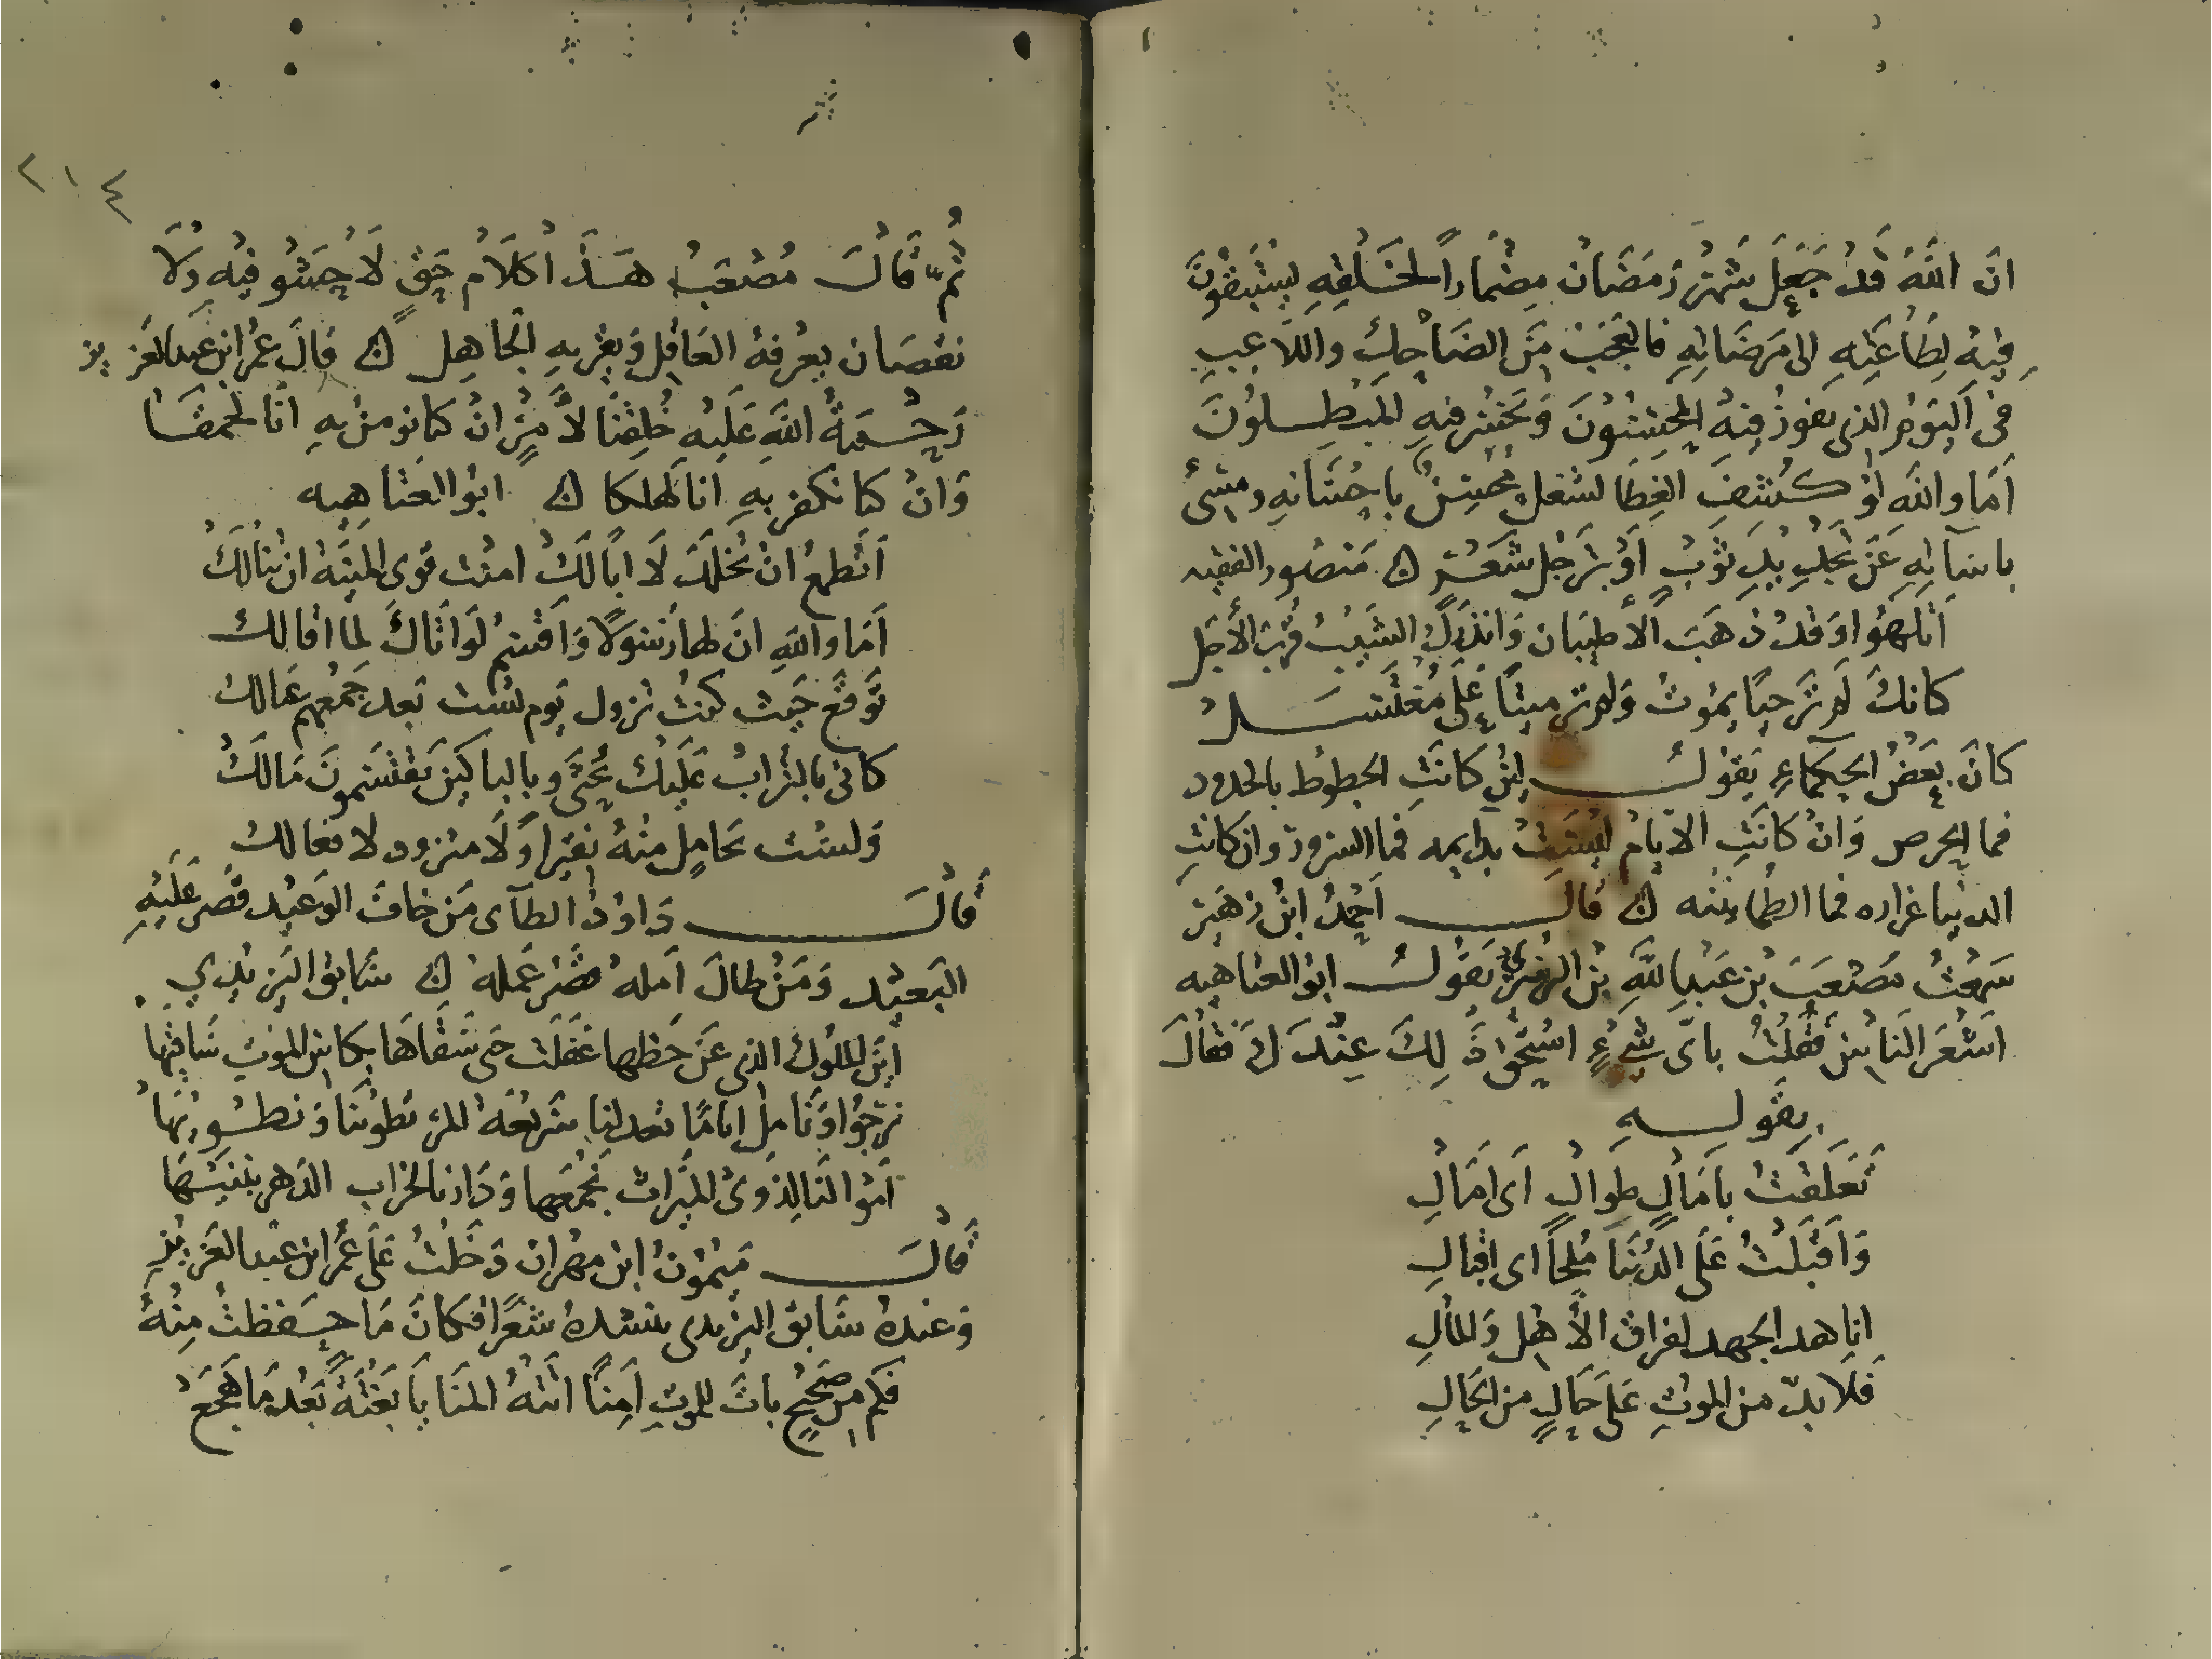 ان اللّه قَدْ جَعَل شَهْرَ رَمَضَانَ مِضْمَاراً لخَلْقِهِ ليسْتَبقُونَ
فِيهِ لِطَاعَتِهِ الى مَرضَاتِهِ فالعَجَبْ مِنَ الضَاحِكِ واللاعِبِ
في اَليَوْمِ الذى يفوزُ فِيهِ المُحِسْنُونَ وَيَخْسَرُ فيهِ المُبْطِلونَ
اَمَا واللّه لوْ كُشفَ الغِطَا لشغل مُحْسِنٌ باحْسَانِهِ ومسِئٌ
باسَآئِهِ عَنْ تجْدِيدِ ثَوْبٍ اَوْ تَرْجُلِ شَعْرٍ ن مَنصُور الفقيه
اَتلهُوا وَقدْ ذهَبَ الاَطيَبان وَانذرَكَ الشيبُ قُرْبَ الأَجَل
كانكَ لَم تَرَ حَيًا يمُوتُ وَلم ترَ ميتًا عَلَى مُغتَسَل
كانَ بعَضُ الحكَماءِ يَقولُ لئِنْ كانَتِ الحظوظ بالجدود
فما الحِرص وَانْ كانَتِ الايامُ لَيْسَتْ بدايمه فما السرور وان كانتِ
الدنيا غراره فما الطمانينه ن قال اَحْمدُ ابنُ زهَير
سَمعْتُ مُصْعَبَ بْن عَبْدِ اللّهِ بْن الزُبَيرى يَقُولُ ابوالعتاهيه
اَشعَرَ النَاسِ فَقُلتُ باىّ شىْءٍ اسْتحَقَ ذَ لِكَ عِنْدَ كَ فقالَ
بِقولِهِ
تَعَلقتُ بآمَالٍ طِوالٍ اَى اَمَالِ
وَاَقبَلتُ عَلَى الدُنيَا مُلِحًا اى اقبالِ
ايا هدا تجهد لفراق الأَهْل وَالمالِ
فَلا بدّ من الموتِ عَلَى حَالٍ من الحالِ
٢١٤
ثُمّ قَالَ مُصْعَبُ هَذَا كلامُ حَقٍ لاَ حِشو فيْهِ وَلاَ
نقصَان يعرفهُ العَاقِل وَيقرّ بهِ الجاهِل ن قالَ عمُر ابن عَبدالعَزيز
رَحْمَةُ اللّهِ عَلَيْهِ خُلِقنَا لاَمْرٍ انْ كنا نومنُ بهِ انا لحمقَا
وَانْ كنا نكفر بهِ انا لهلكا ن ابوالعَتاهيه
اَتطمعُ انْ تُخلدَ لاَ اَبَالَكَ امنْتَ قوى المنيَّه ان تنالكَ
اَمَا واللّهِ انَ لهَا رَسولاً وَاَقسِمُ لوَ اتَاكَ لما اقالك
تَوقعْ حَيث كنتْ نزول يَوم تشت بَعد جَمْعهم عَيالك
كانى بالتُرابْ عَلَيْك يُحثَى وبالباكينَ يَقتسَمونَ مَالَكَ
وَلسْت بحَامِلٍ منْهُ نقيراً وَلاَ متزود لا فعالك
قَالَ دَاودُ الطآى مَن خافَ الوَعيْد قصُرَ عَلَيْهِ
البَعيْد وَمَنْ طالَ اَمله قصَّر عَملهُ ن سَابق البَرْبَري
اَيْنَ الملوك الذى عَن حَظها غفلَتْ حتى سَقَاهَا بكاسِ الموتِ سَاقيهَا
نرجُوا وَنَامل ايامًا تعد لنا سَريعَة المر تطوينَا وَنطويهَا
اَموالنَا لِذَوى الميَراث نجْمَعهَا وَدَارنا لخراب الدَهر نبنيَهَا
قَالَ مَيْمُونُ ابن مهران دَخلتُ عَلى عُمَر ابن عبْد العَزيْزِ
وَعندهُ سَابق البربرى ينشدهُ شعْراً فكانَ مَا حَفظتُ مِنْهُ
فَكم مِن صَحيْحٍ باتَ للموتِ اَمِناً اتتهُ المنَا يَا بَغْتَةً بَعْدمَا هَجَعْ